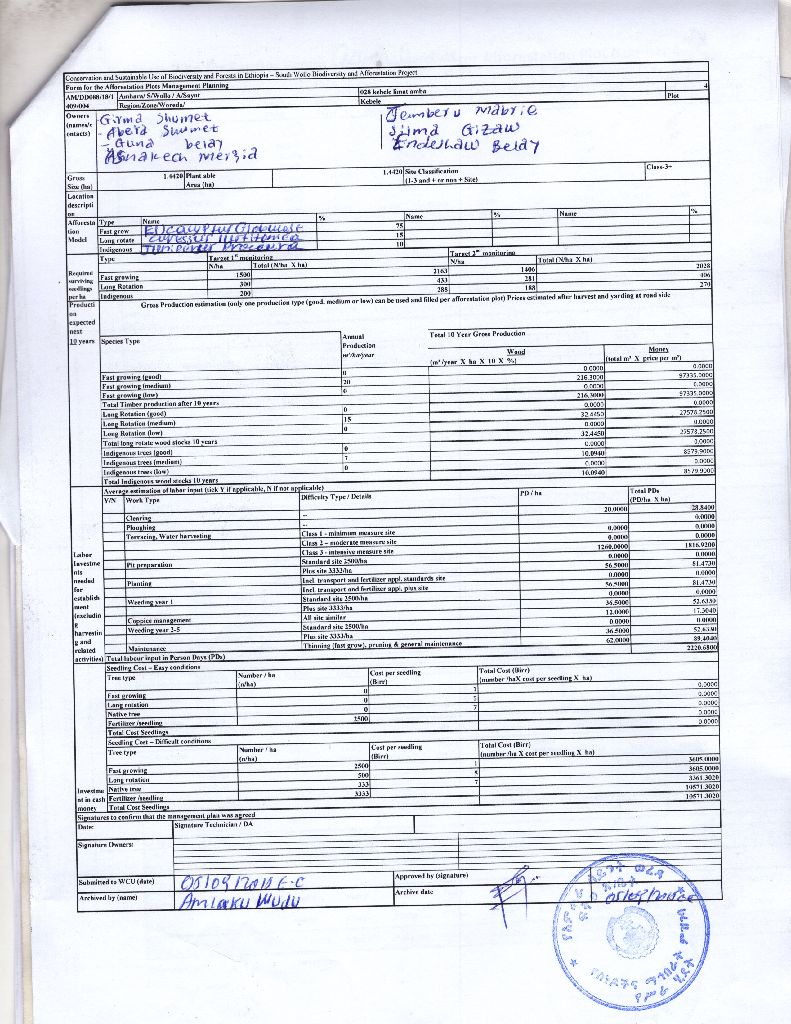 Conservation and Sustainable Use of Biodiversity and Forests in Ethiopia – South Wollo Biodiversity and Afforestation Project
Form for the Afforestation Plots Management Planning
AM/DD088/18/1 Amhara/ S/Wollo / A/Saynt 028 kebele limat amba 4
409/004 Region/Zone/Woreda/ Kebele Plot
Owners (names/contacts)
Girma Shumet
- Abera Shumet
- Guna belay
Asnakech mersid
Jemberu mabrie
Sima Gizaw
Endeshaw Belay
Gross Size (ha) 1.4420 Plant able Area (ha) 1.4420 Site Classification (1-3 and + or non + Site) Class-3+
Location description
Afforestation Model
Type Name % Name % Name %
Fast grow 75
Long rotate 15
Indigenous 10
Required surviving seedlings per ha
Type Target 1st monitoring Target 2nd monitoring
N/ha Total (N/ha X ha) N/ha Total (N/ha X ha)
Fast growing 1500 2163 1406 2028
Long Rotation 300 433 281 406
Indigenous 200 288 188 270
Production expected next 10 years
Gross Production estimation (only one production type (good, medium or low) can be used and filled per afforestation plot) Prices estimated after harvest and yarding at road side
Species Type Annual Production m³/ha/year Total 10 Year Gross Production
Wood (m³/year X ha X 10 X %) Money (total m³ X price per m³)
Fast growing (good) 0 0.0000 0.0000
Fast growing (medium) 20 216.3000 97335.0000
Fast growing (low) 0 0.0000 0.0000
Total Timber production after 10 years 216.3000 97335.0000
Long Rotation (good) 0 0.0000 0.0000
Long Rotation (medium) 15 32.4450 27578.2500
Long Rotation (low) 0 0.0000 0.0000
Total long rotate wood stocks 10 years 32.4450 27578.2500
Indigenous trees (good) 0 0.0000 0.0000
Indigenous trees (medium) 7 10.0940 8579.9000
Indigenous trees (low) 0 0.0000 0.0000
Total Indigenous wood stocks 10 years 10.0940 8579.9000
Labor Investments needed for establishment (excluding harvesting and related activities)
Average estimation of labor input (tick Y if applicable, N if not applicable)
Y/N Work Type Difficulty Type / Details PD / ha Total PDs (PD/ha X ha)
Clearing -- 20.0000 28.8400
Ploughing -- 0.0000
Terracing, Water harvesting Class 1 - minimum measure site 0.0000 0.0000
Class 2 – moderate measure site 0.0000 0.0000
Class 3 - intensive measure site 1260.0000 1816.9200
Pit preparation Standard site 2500/ha 0.0000 0.0000
Plus site 3333/ha 56.5000 81.4730
Planting Incl. transport and fertilizer appl. standards site 0.0000 0.0000
Incl. transport and fertilizer appl. plus site 56.5000 81.4730
Weeding year 1 Standard site 2500/ha 0.0000 0.0000
Plus site 3333/ha 36.5000 52.6330
Coppice management All site similar 12.0000 17.3040
Weeding year 2-5 Standard site 2500/ha 0.0000 0.0000
Plus site 3333/ha 36.5000 52.6330
Maintenance Thinning (fast grow), pruning & general maintenance 62.0000 89.4040
Total labour input in Person Days (PDs) 2220.6800
Investment in cash money
Seedling Cost – Easy conditions
Tree type Number / ha (n/ha) Cost per seedling (Birr) Total Cost (Birr) (number /haX cost per seedling X ha)
Fast growing 0 1 0.0000
Long rotation 0 5 0.0000
Native tree 0 7 0.0000
Fertilizer /seedling 2500 0.0000
Total Cost Seedlings 0.0000
Seedling Cost – Difficult conditions
Tree type Number / ha (n/ha) Cost per seedling (Birr) Total Cost (Birr) (number /ha X cost per seedling X ha)
Fast growing 2500 1 3605.0000
Long rotation 500 5 3605.0000
Native tree 333 7 3361.3020
Fertilizer /seedling 3333 10571.3020
Total Cost Seedlings 10571.3020
Signatures to confirm that the management plan was agreed
Date: Signature Technician / DA
Signature Owners:
Submitted to WCU (date) 05/09/2018 E.C Approved by (signature)
Archived by (name) Amlaku Wudu Archive date